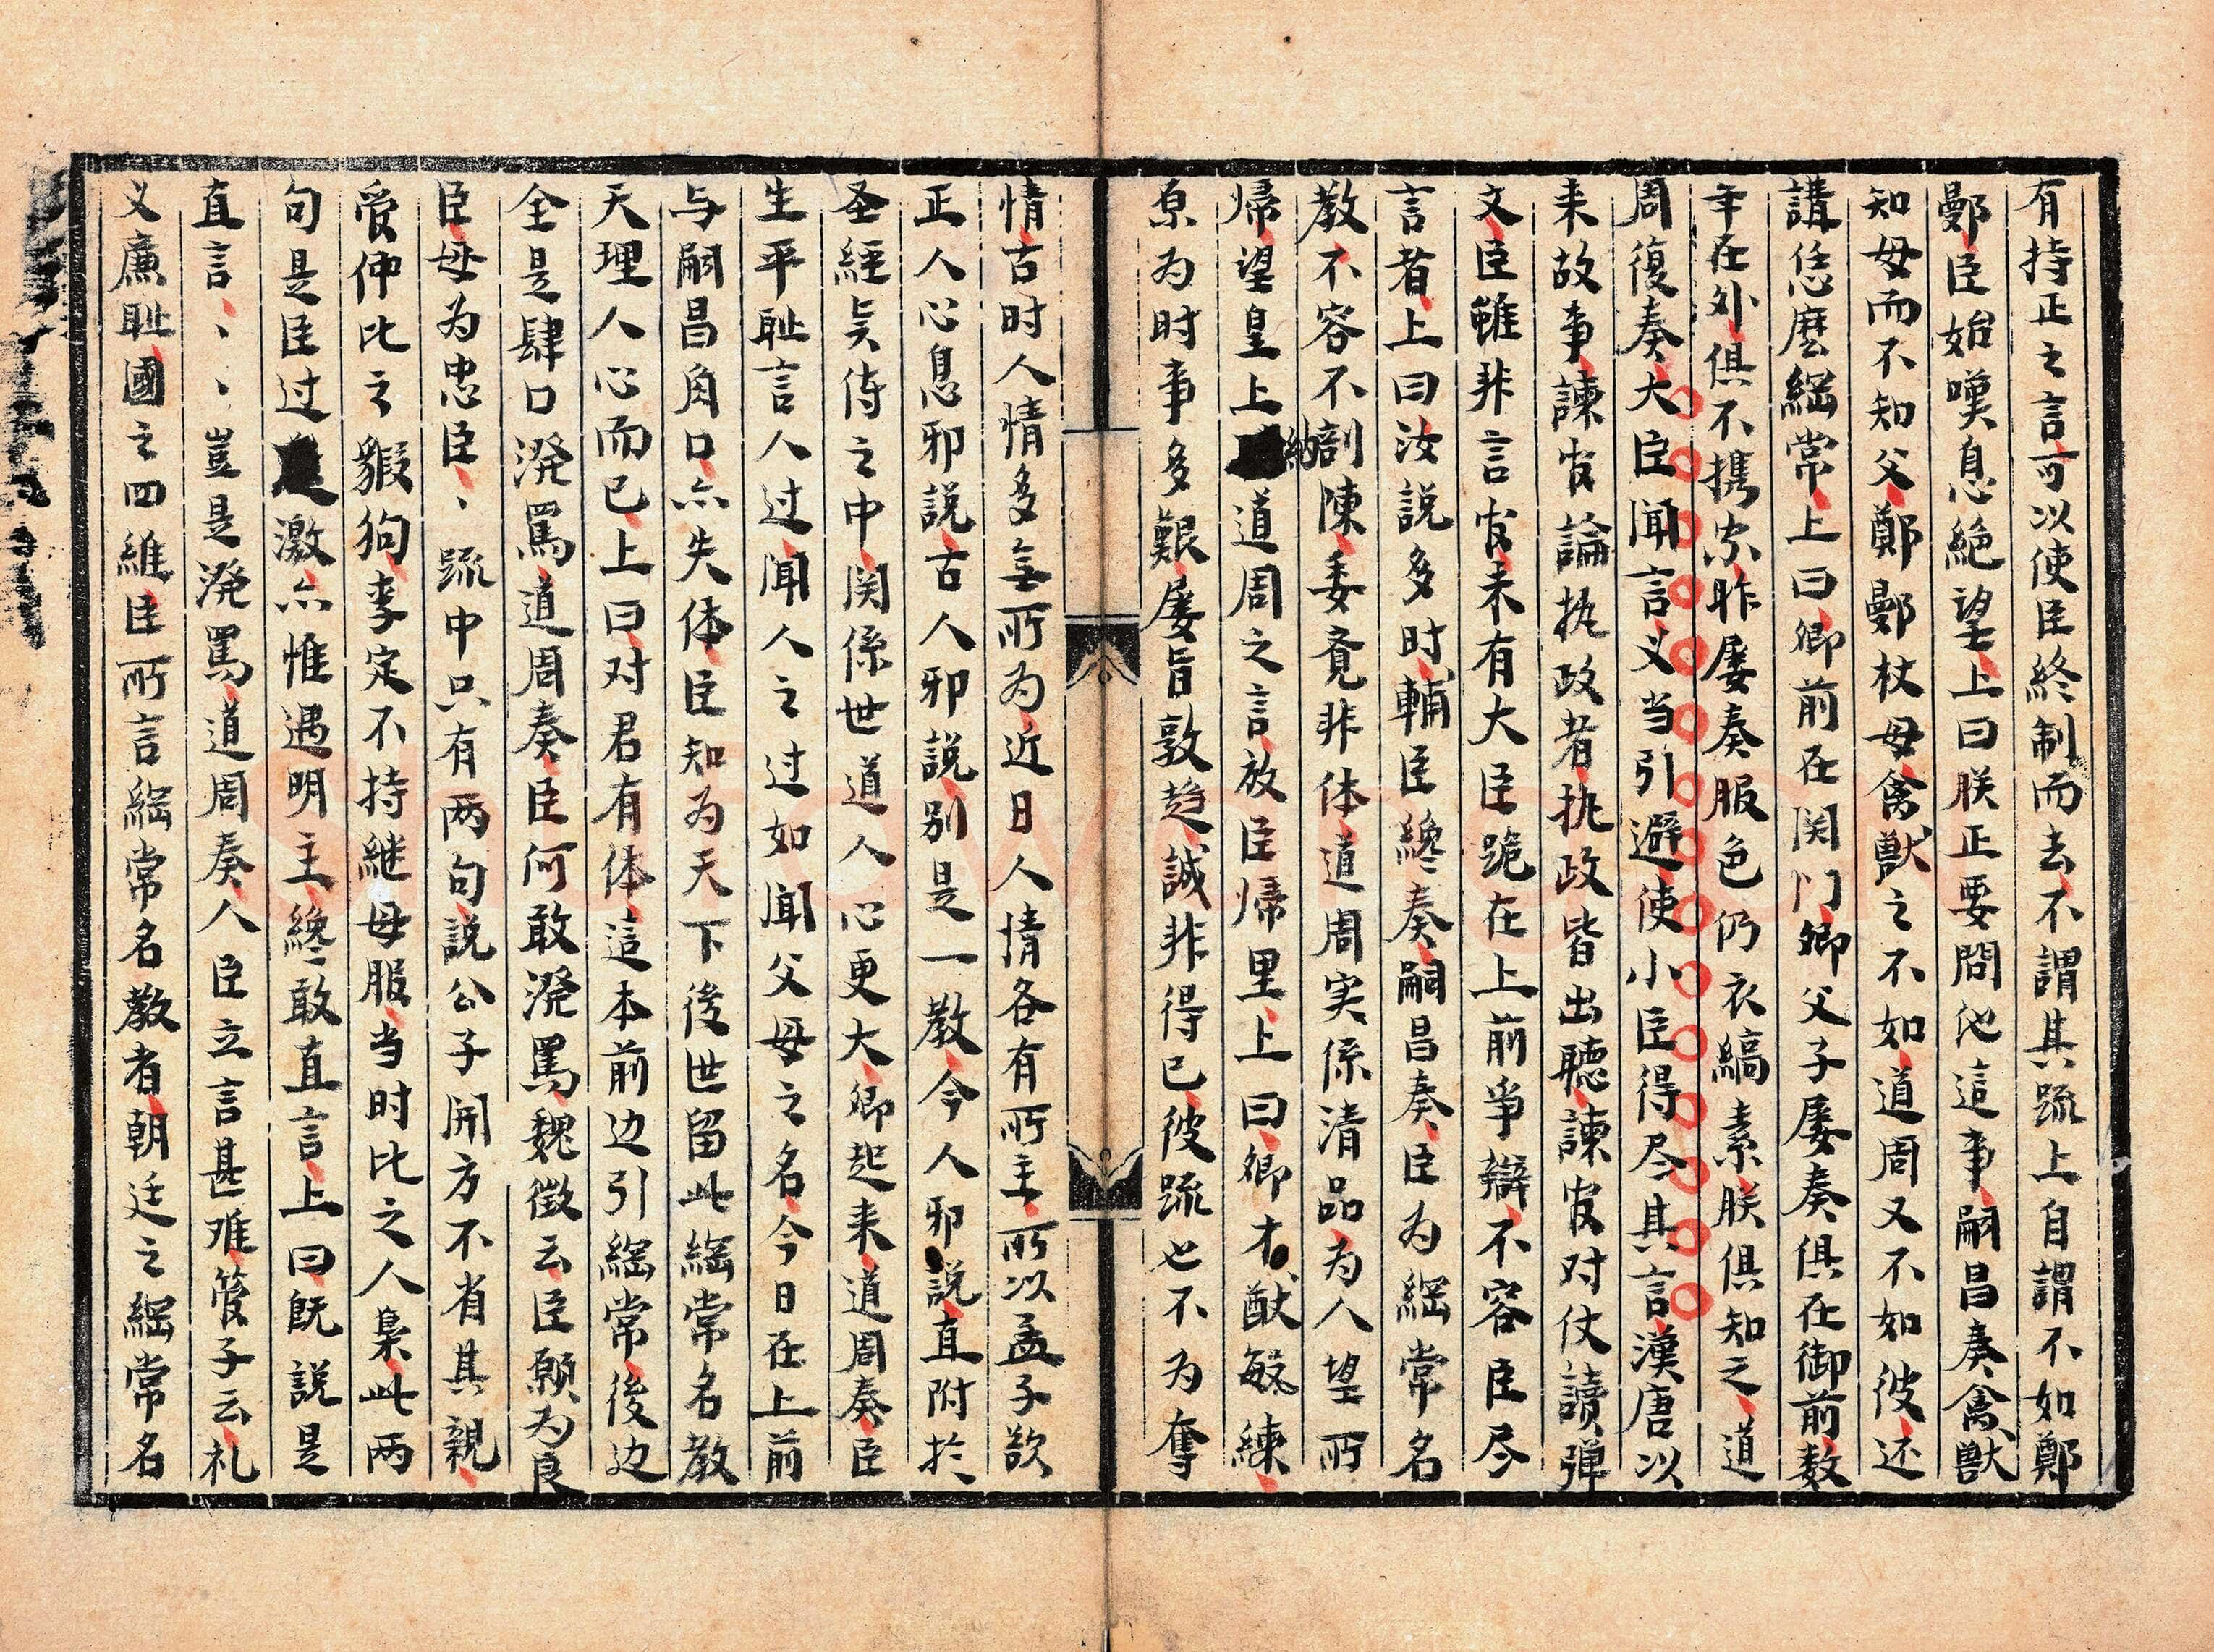 有持正之言可以使臣終制而去不謂其疏上自謂不如鄭
鄤臣始嘆息絕望上曰朕正要問他這事嗣昌奏禽獸
知母而不知父鄭鄤杖母禽獸之不如道周又不如彼还
講恁麽綱常上曰卿前在関门卿父子屡奏俱在御前数
年在外俱不携家昨屡奏服色仍衣縞素朕俱知之道
周復奏大臣聞言义当引避使小臣得尽其言漢唐以
来故事諫官論执政者执政皆出聽諫官对仗讀弹
文臣雖非言官未有大臣跪在上前爭辯不容臣尽
言者上曰汝説多时輔臣纔奏嗣昌奏臣为綱常名
教不容不剖陳委竟非体道周実係清品为人望所
歸望皇上納道周之言放臣歸里上曰卿才猷敏練
原为时事多艱屡旨敦趋誠非得已彼疏也不为奪
情古时人情多無所为近日人情各有所主所以孟子欲
正人心息邪説古人邪説别是一教今人邪説直附於
圣經賢传之中関係世道人心更大卿起来道周奏臣
生平耻言人过聞人之过如聞父母之名今日在上前
与嗣昌角口亦失体臣知为天下後世留此綱常名教
天理人心而已上曰对君有体這本前边引綱常後边
全是肆口溌罵道周奏臣何敢溌罵魏徵云臣願为良
臣毋为忠臣、、疏中只有两句説公子開方不省其親、
爰伸比之豭狗李定不持継母服当时比之人梟此两
句是臣过激亦惟遇明主纔敢直言上曰既説是
直言、、、豈是溌罵道周奏人臣立言甚难管子云礼
义廉耻國之四維臣所言綱常名教者朝廷之綱常名